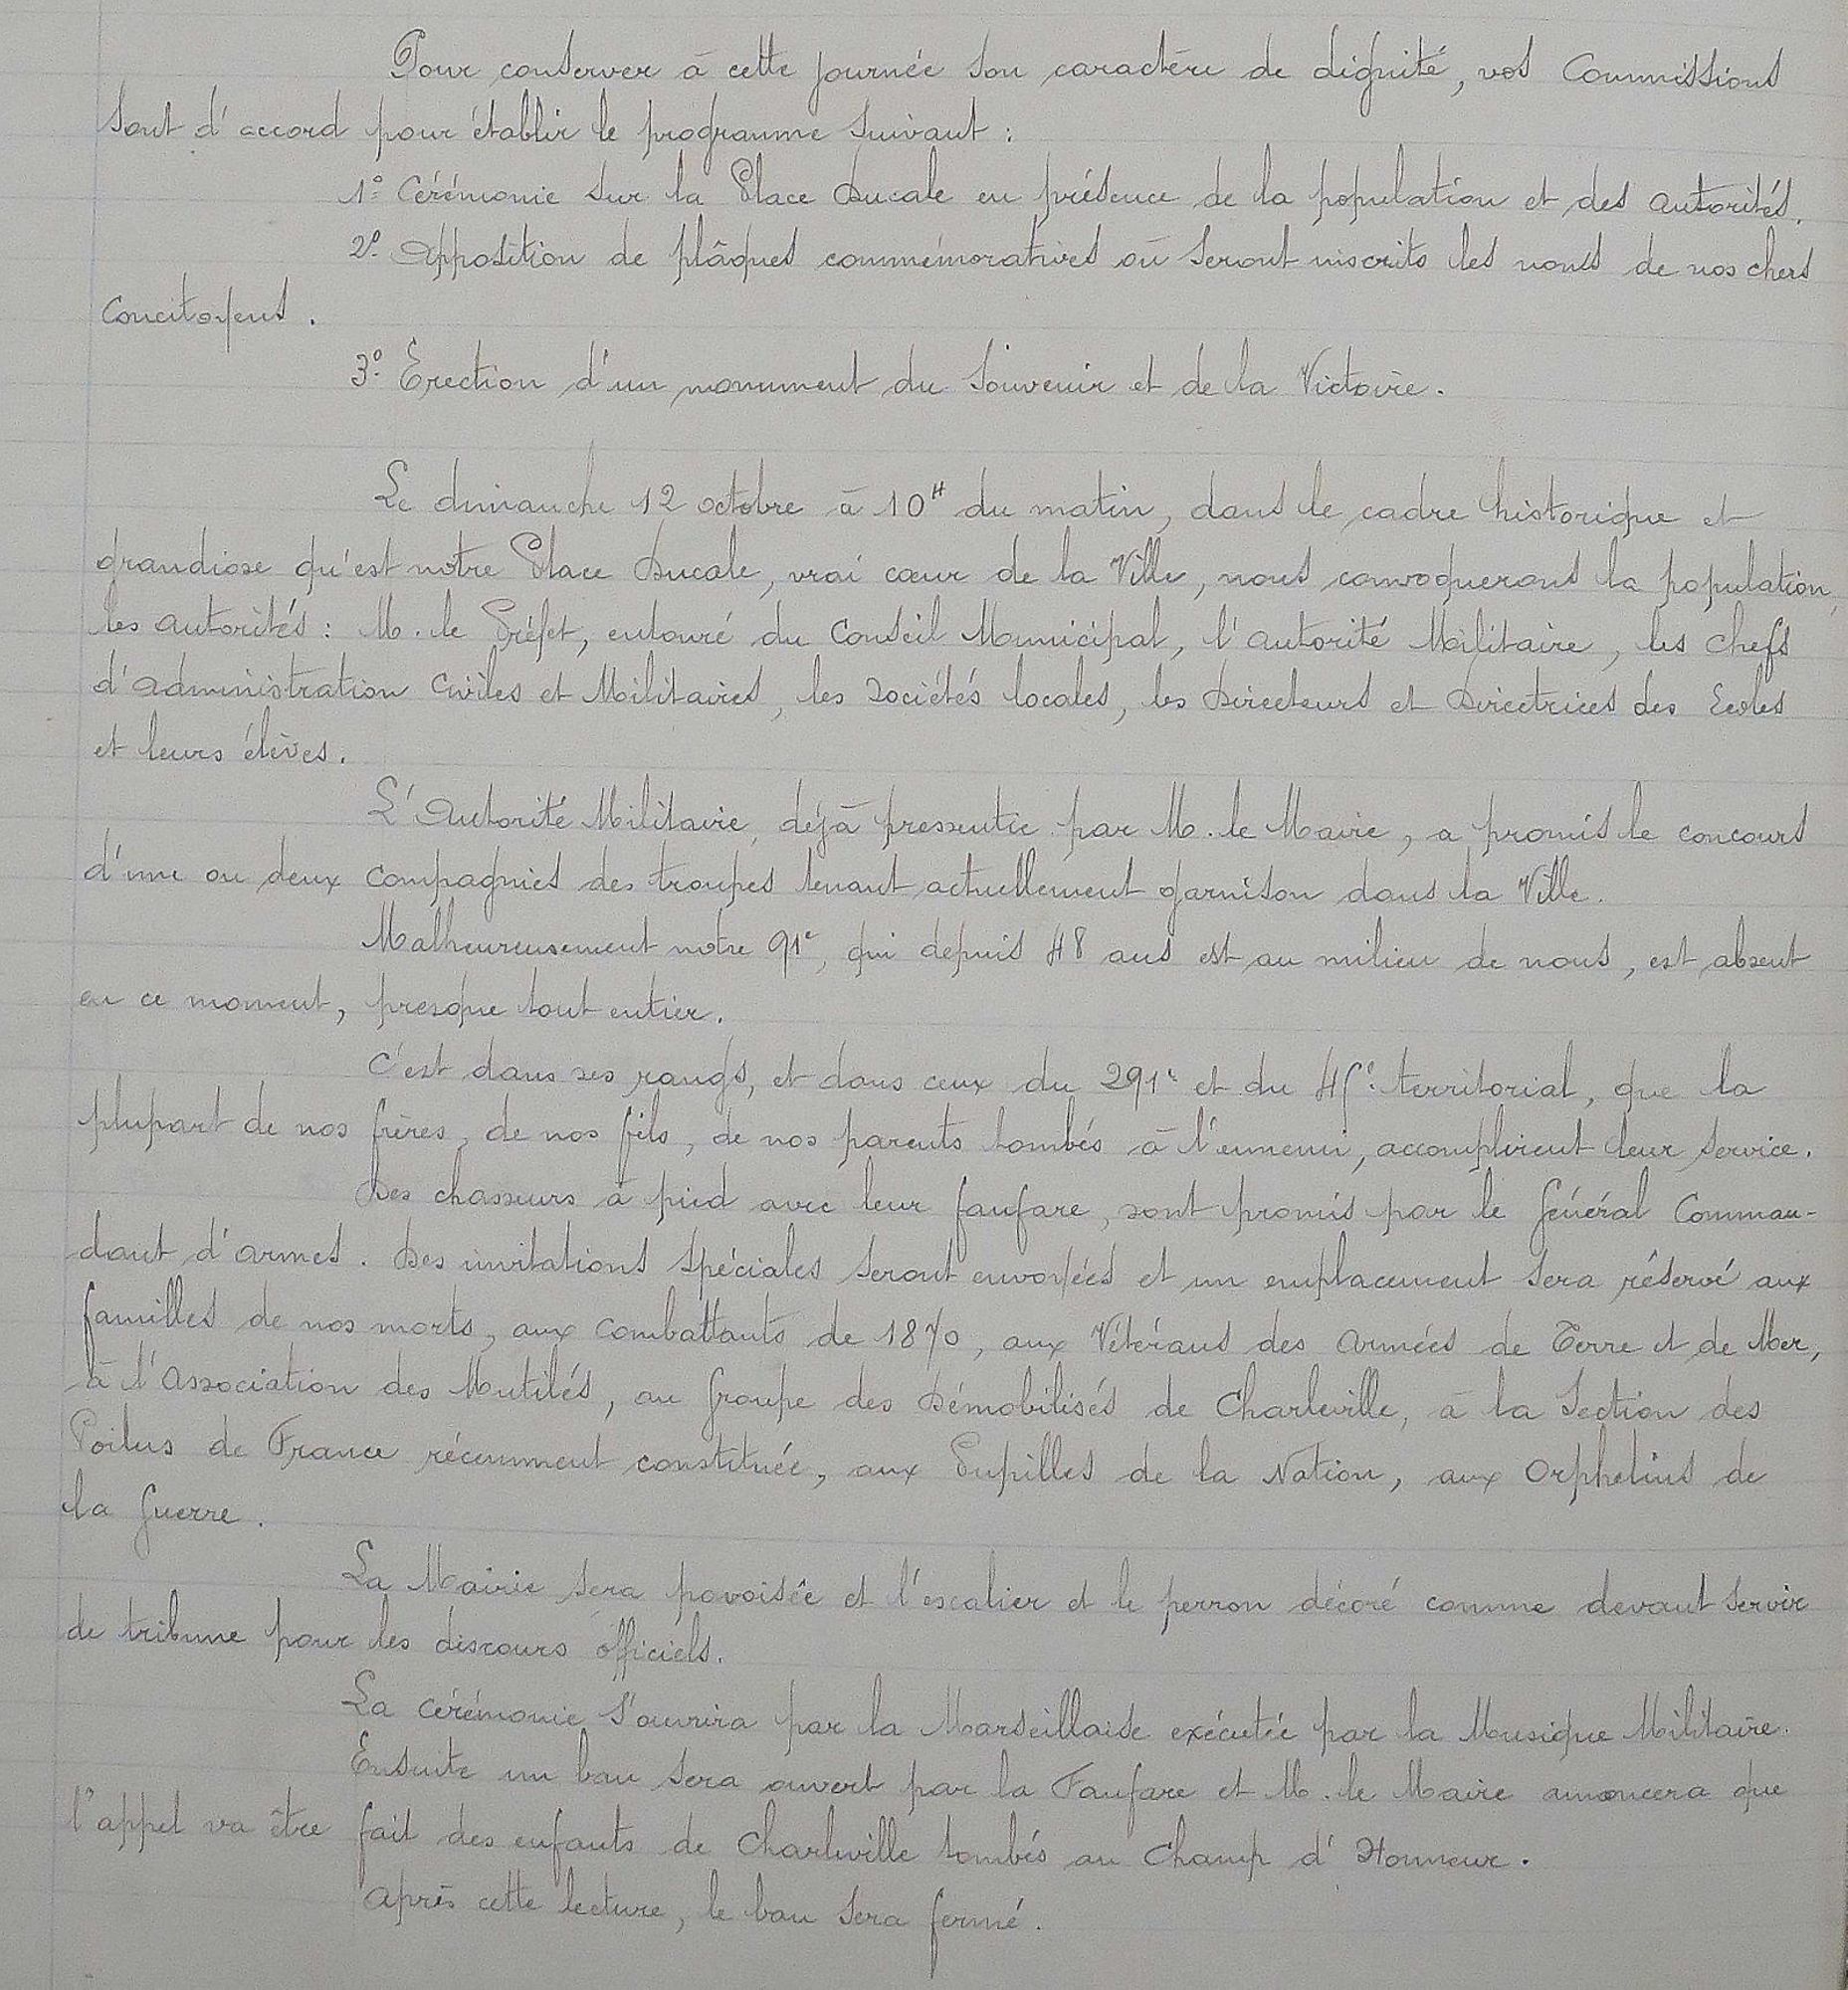 Pour conserver à cette journée son caractère de dignité, vos Commissions
sont d'accord pour établir le programme suivant :
1° Cérémonie sur la Place Ducale en présence de la population et des autorités.
2° Apposition de plâques commémoratives où seront inscrits les noms de nos chers
Concitoyens.
3° Erection d'un monument du Souvenir et de la Victoire.
Le dimanche 12 octobre à 10H du matin, dans le cadre historique et
grandiose qu'est notre Place Ducale, vrai cœur de la Ville, nous convoquerons la population,
les autorités : M. le Préfet, entouré du Conseil Municipal, l'autorité Militaire, les chefs
d'administration Civiles et Militaires, les Sociétés locales, les Directeurs et Directrices des Ecoles
et leurs élèves.
L'Autorité Militaire, déjà pressentie par M. le Maire, a promis le concours
d'une ou deux Compagnies des troupes tenant actuellement garnison dans la Ville.
Malheureusement notre 91e, qui depuis 48 ans est au milieu de nous, est absent
en ce moment, presque tout entier.
C'est dans ses rangs, et dans ceux du 291e et du territorial, que la
plupart de nos frères, de nos fils, de nos parents tombés à l'ennemi, accomplirent leur service.
Des chasseurs à pied avec leur fanfare, sont promis par le Général Comman-
dant d'armes. Des invitations spéciales seront envoyées et un emplacement sera réservé aux
familles de nos morts, aux Combattants de 1870, aux Vétérans des Armées de Terre et de Mer,
à l'Association des Mutilés, au Groupe des Démobilisés de Charleville, à la Section des
Poilus de France récemment constituée, aux Pupilles de la Nation, aux Orphelins de
la Guerre.
La Mairie sera pavoisée et l'escalier et le perron décoré comme devant servir
de tribune pour les discours officiels.
La cérémonie s'ouvrira par la Marseillaise exécutée par la Musique Militaire.
Ensuite un ban sera ouvert par la Fanfare et M. le Maire annoncera que
l'appel va être fait des enfants de Charleville tombés au Champ d'Honneur.
Après cette lecture, le ban sera fermé.